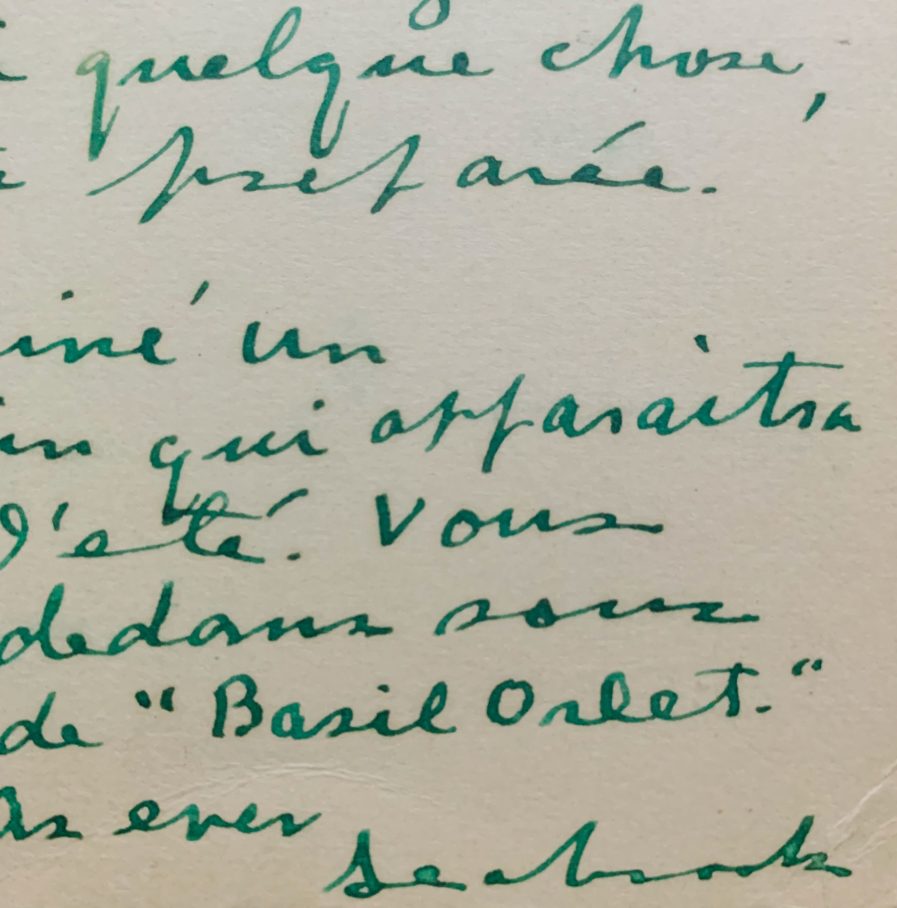 quelque chose,
préparée.
iné un
in qui apparaitra
l'eté. Vous
dedans sous
de "Basil Orlet."
As ever
Seabrook